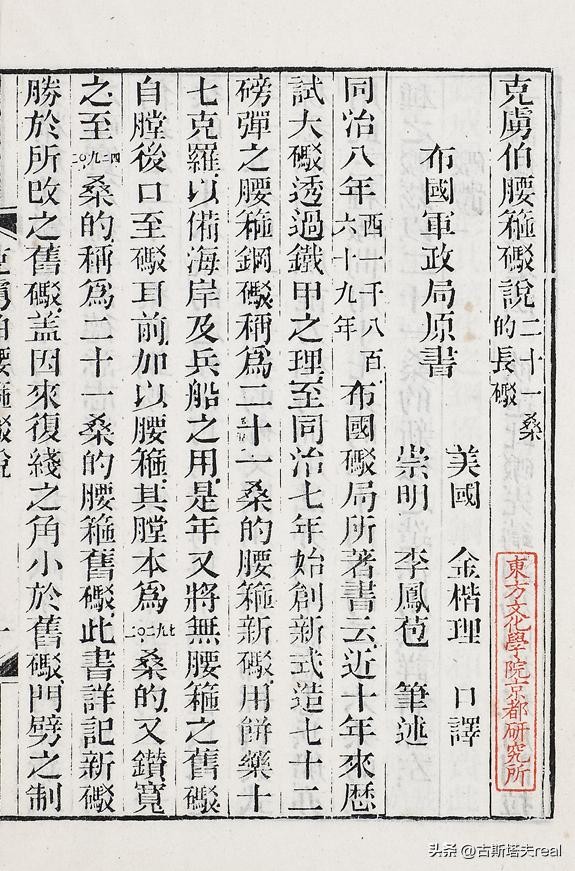 克虜伯腰箍礮說 二十一桑的長礮
布國軍政局原書
美國 金楷理 口譯
崇明 李鳳苞 筆述
同治八年 西一千八百六十九年 布國礮局所著書云近十年來歷
試大礮透過鐵甲之理至同治七年始創新式造七十二
磅彈之腰箍鋼礮稱爲二十一桑的腰箍新礮用餅藥十
七克羅以備海岸及兵船之用是年又將無腰箍之舊礮
自膛後口至礮耳前加以腰箍其膛本爲桑的又鑽寬
之至桑的稱爲二十一桑的腰箍舊礮此書詳記新礮
勝於所改之舊礮蓋因來復綫之角小於舊礮門劈之制
克虜伯腰箍礮說
一
東方文化學院京都研究所
头条 @古斯塔夫real